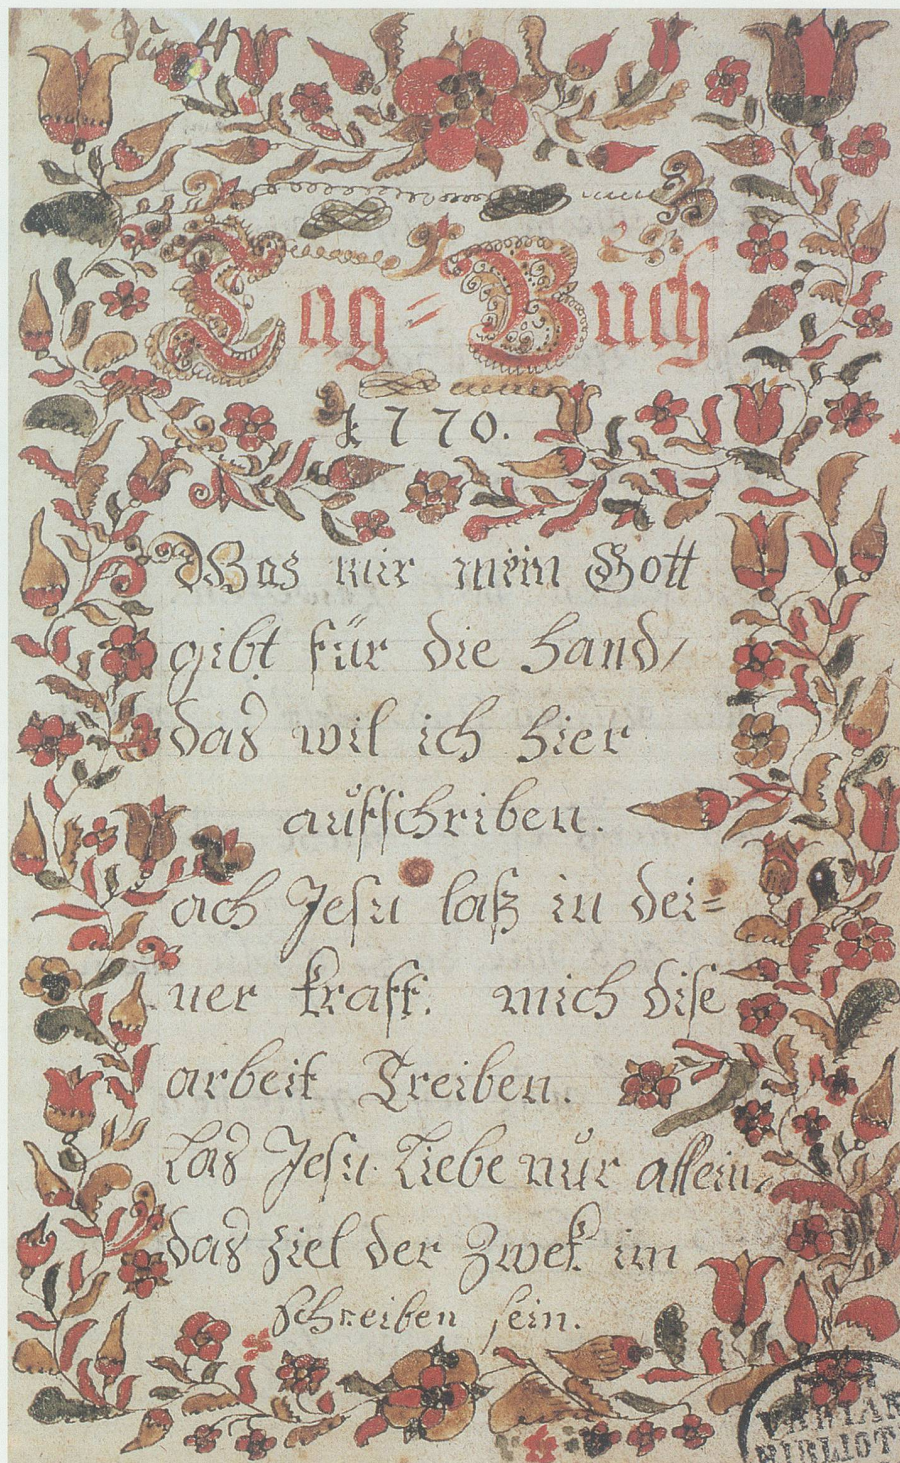 Tag=Buch
1770.
Was mir mein Gott
gibt für die hand/
das wil ich hier
aufschriben.
ach Jesu laß in dei=
ner kraft. mich dise
arbeit Treiben.
Las Jesu Liebe nur allein,
das ziel der Zwek im
schreiben sein.